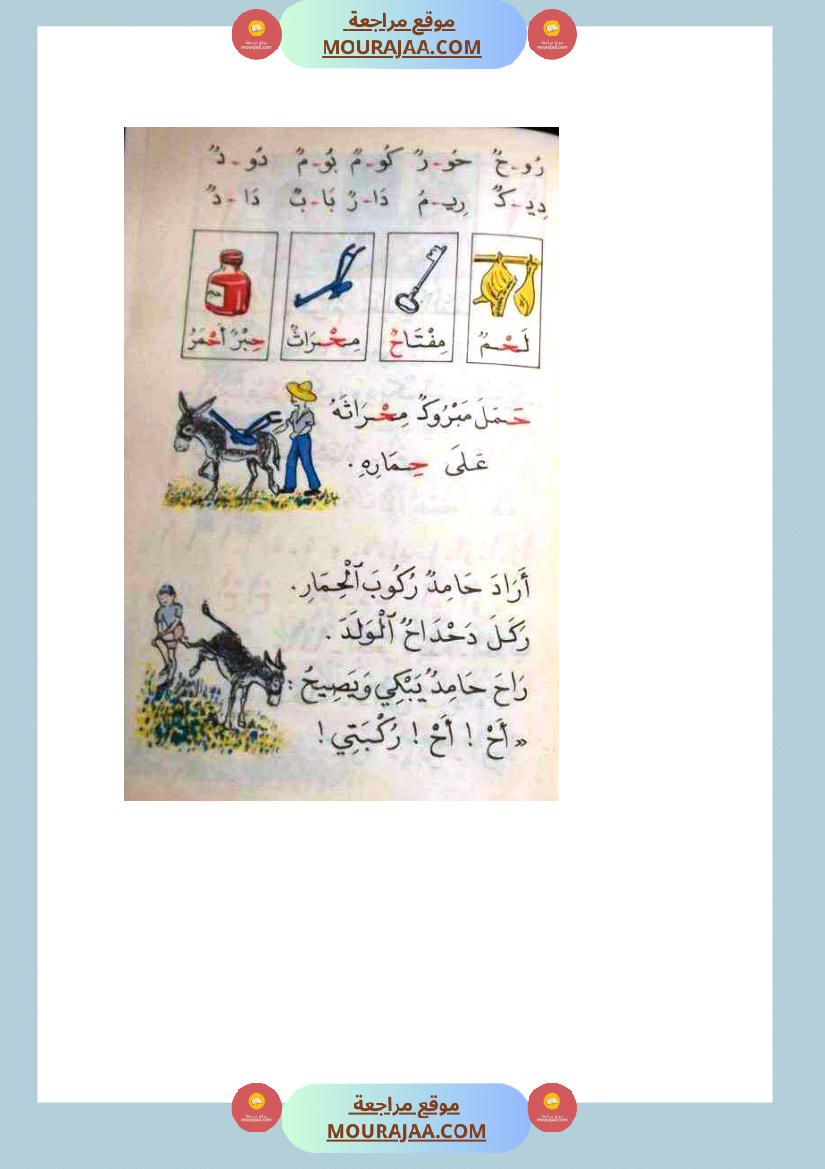 موقع مراجعة
MOURAJAA.COM
رُو-حٌ حُو-رٌ كُو-مٌ بُو-مٌ دُو-دٌ
دِيـ-كٌ رِيـ-مُ دَا-رٌ بَا-بٌ دَا-دٌ
لَحْمٌ مِفْتَاحٌ مِحْرَاثٌ حِبْرٌ أَحْمَرُ
حَمَلَ مَبْرُوكٌ مِحْرَاثَهُ
عَلَى حِمَارِهِ.
أَرَادَ حَامِدٌ رُكُوبَ ٱلْحِمَارِ.
رَكَلَ دَحْدَاحٌ ٱلْوَلَدَ.
رَاحَ حَامِدٌ يَبْكِي وَيَصِيحُ:
«أَحْ! أَحْ! رُكْبَتِي!
موقع مراجعة
MOURAJAA.COM